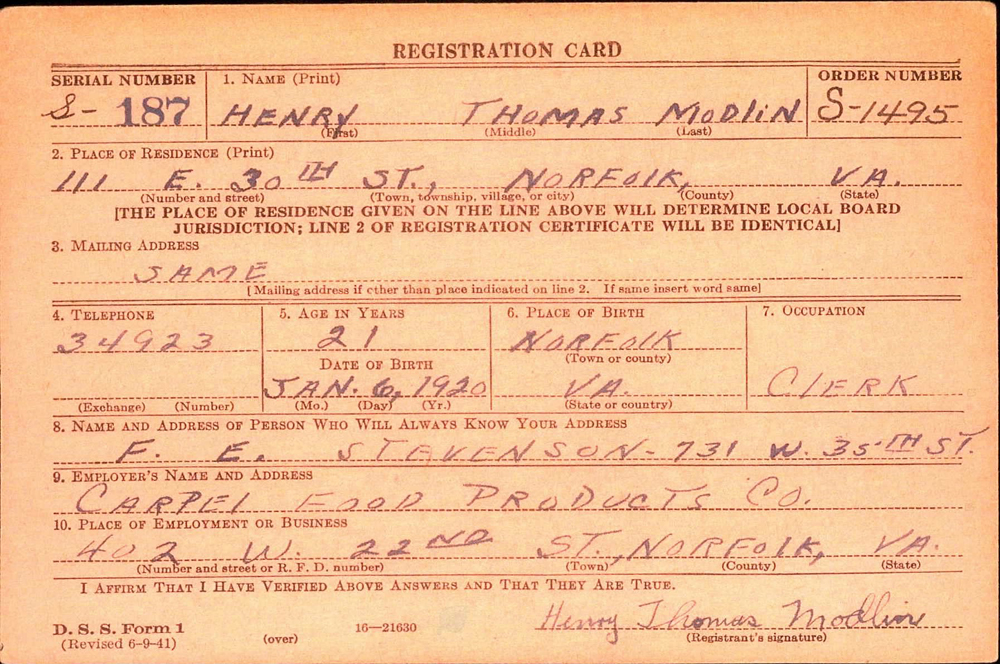 REGISTRATION CARD
SERIAL NUMBER 1. NAME (Print) ORDER NUMBER
S- 187 HENRY THOMAS MODLIN S-1495
(First) (Middle) (Last)
2. PLACE OF RESIDENCE (Print)
111 E. 30TH ST., NORFOLK, VA.
(Number and street) (Town, township, village, or city) (County) (State)
[THE PLACE OF RESIDENCE GIVEN ON THE LINE ABOVE WILL DETERMINE LOCAL BOARD
JURISDICTION; LINE 2 OF REGISTRATION CERTIFICATE WILL BE IDENTICAL]
3. MAILING ADDRESS
SAME
[Mailing address if other than place indicated on line 2. If same insert word same]
4. TELEPHONE 5. AGE IN YEARS 6. PLACE OF BIRTH 7. OCCUPATION
34923 21 NORFOLK
DATE OF BIRTH (Town or county)
JAN. 6, 1920 VA. CLERK
(Exchange) (Number) (Mo.) (Day) (Yr.) (State or country)
8. NAME AND ADDRESS OF PERSON WHO WILL ALWAYS KNOW YOUR ADDRESS
F. E. STEVENSON - 731 W. 35TH ST.
9. EMPLOYER'S NAME AND ADDRESS
CARPEL FOOD PRODUCTS CO.
10. PLACE OF EMPLOYMENT OR BUSINESS
402 W. 22ND ST., NORFOLK, VA.
(Number and street or R. F. D. number) (Town) (County) (State)
I AFFIRM THAT I HAVE VERIFIED ABOVE ANSWERS AND THAT THEY ARE TRUE.
Henry Thomas Modlin
D. S. S. Form 1 (over) 16—21630 (Registrant's signature)
(Revised 6-9-41)